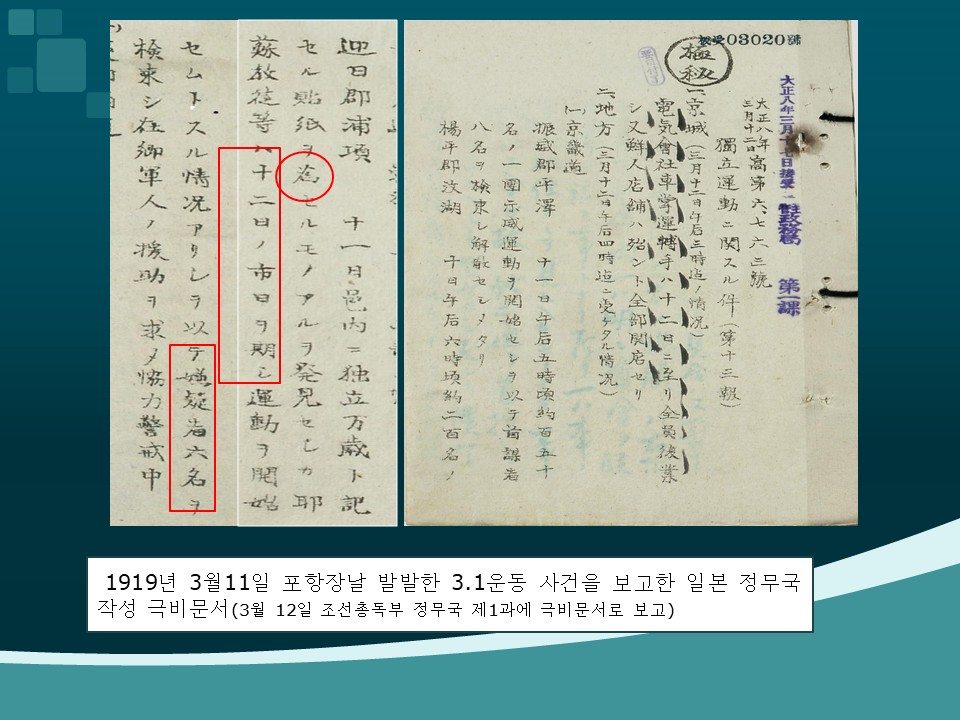 03020號
極秘
大正八年三月十七日接受
政務局 第一課
大正八年三月十二日 高第六、七六三號
獨立運動ニ関スル件(第十三報)
一、京城(三月十二日午后三時迄ノ情況)
電気會社車掌運轉手ハ十二日ニ至リ全員復業
シ又鮮人店舗ハ殆ント全部開店セリ
二、地方(三月十二日午后四時迄ニ受ケタル情況)
(一)京畿道
振威郡平澤 十一日午后五時頃約百五十
名ノ一團示威運動ヲ開始セシヲ以テ首謀者
八名ヲ検束シ解散セシメタリ
楊平郡汶湖 十日午后六時頃約二百名ノ
迎日郡浦項 十一日邑内ニ独立万歳ト記
セル貼紙ヲ為セルモノアルヲ発見セシカ耶
蘇教徒等ハ十二日ノ市日ヲ期シ運動ヲ開始
セムトスル情况アリシヲ以テ嫌疑者六名ヲ
検束シ在郷軍人ノ援助ヲ求メ協力警戒中
1919년 3월11일 포항장날 발발한 3.1운동 사건을 보고한 일본 정무국
작성 극비문서(3월 12일 조선총독부 정무국 제1과에 극비문서로 보고)